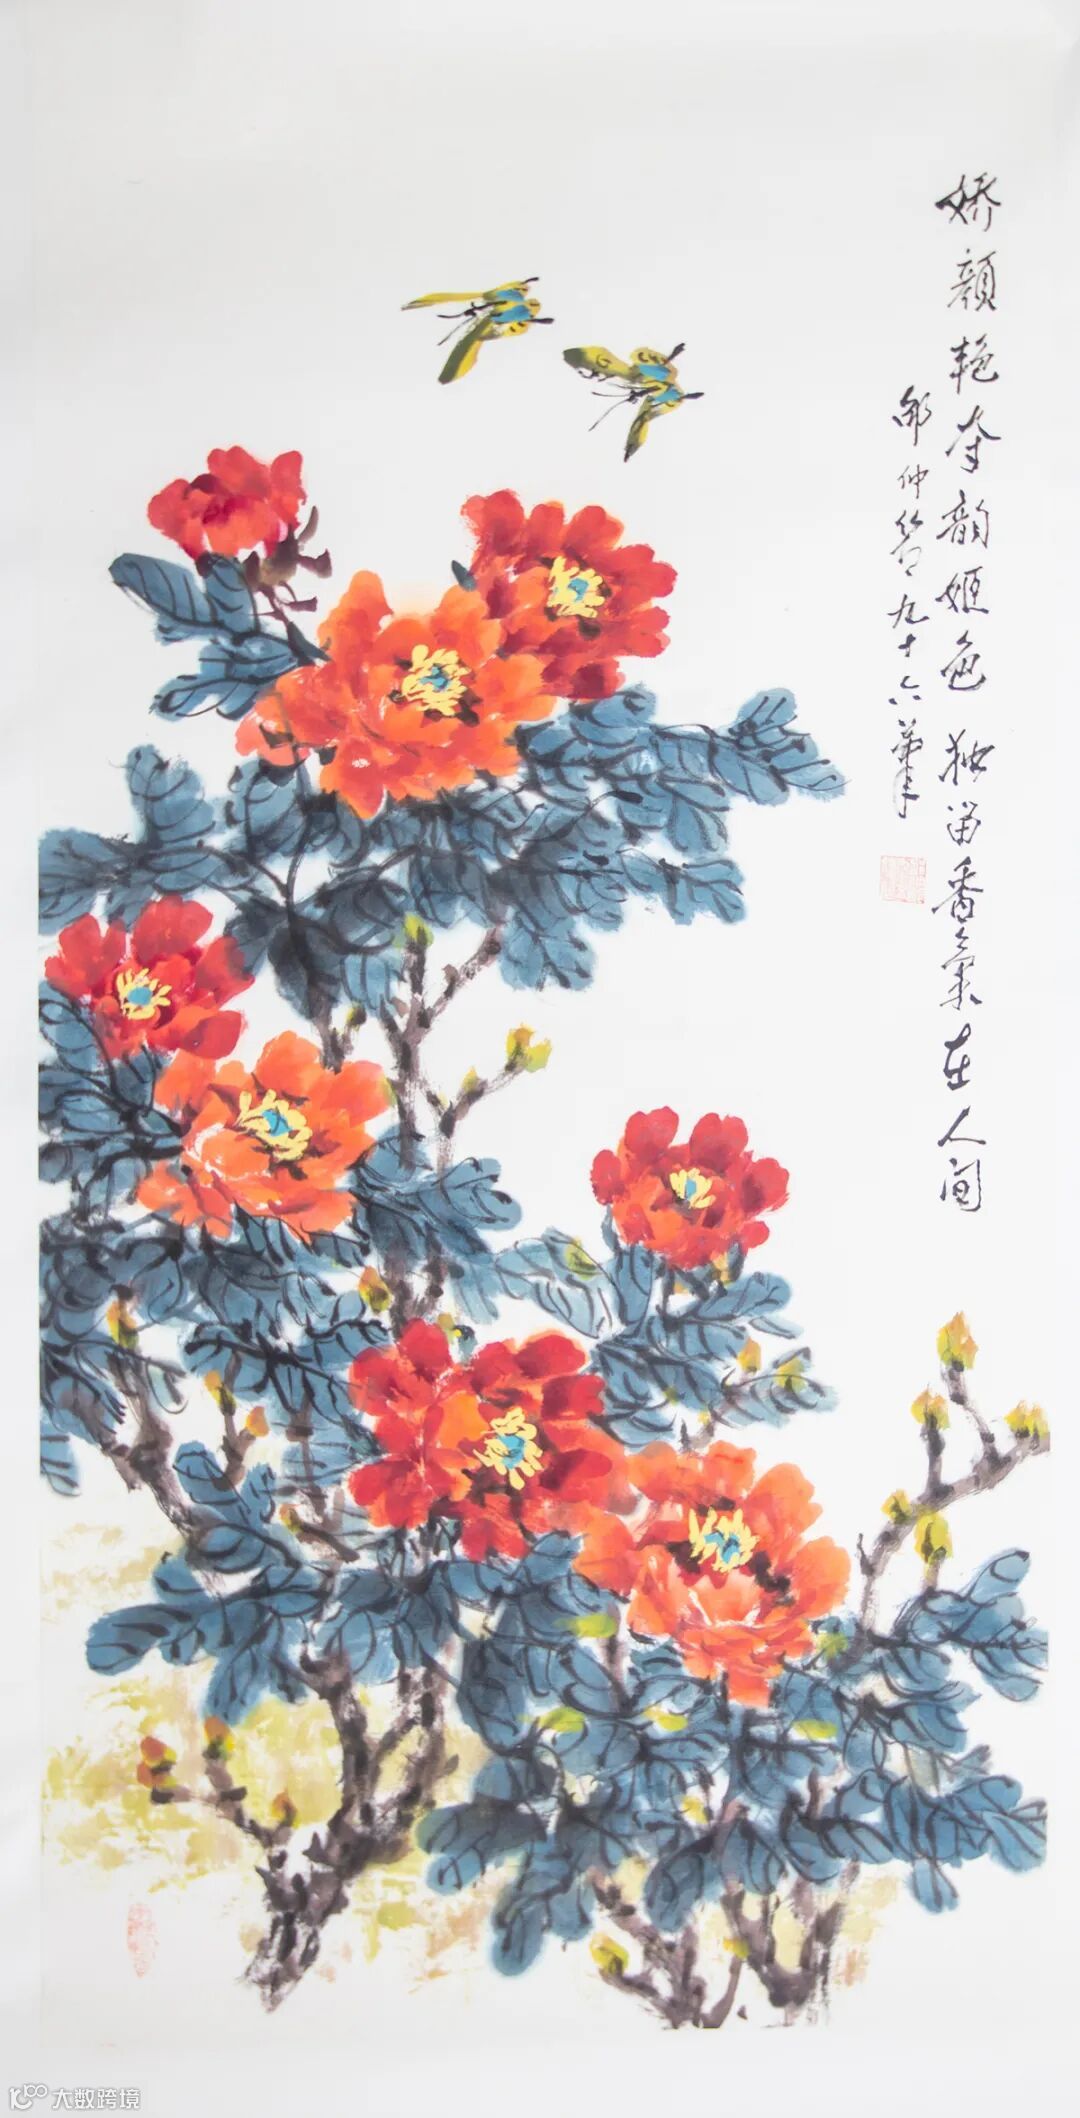 娇颜艳夺韵姬色 独留香气在人间
邵仲节九十六笔
大数跨境